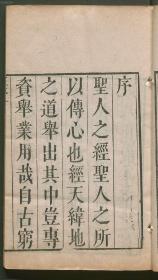 序
聖人之經聖人之所
以傳心也經天緯地
之道舉出其中豈專
資舉業用哉自古窮